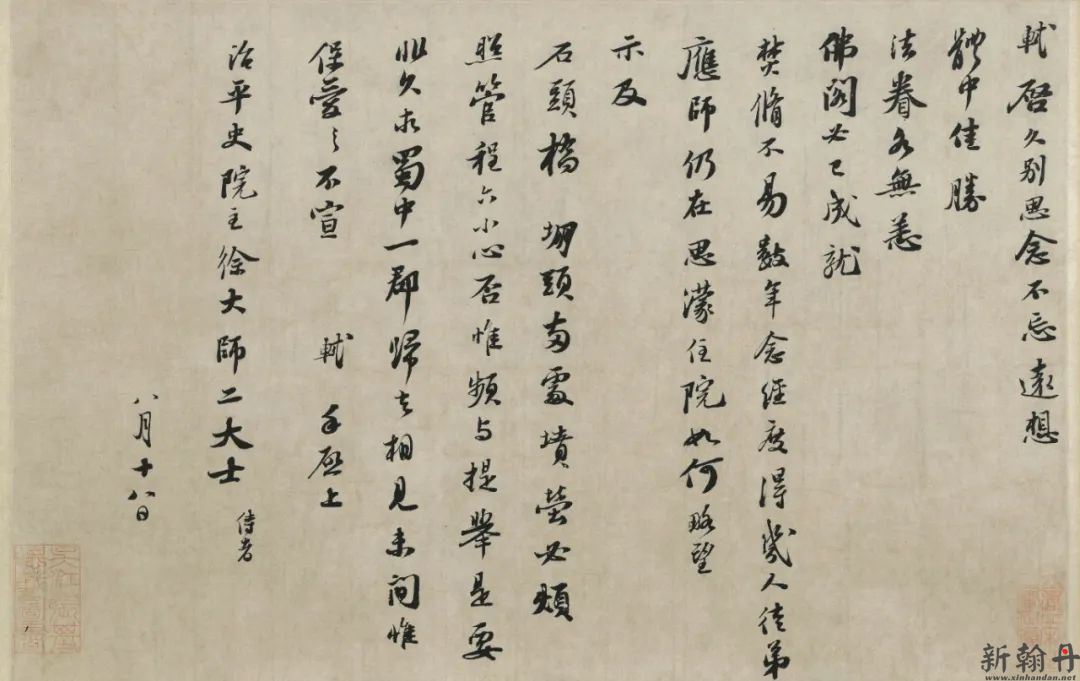 軾啓久別思念不忘遠想
體中佳勝
法眷各無恙
佛閣必已成就
焚脩不易數年念經度得幾人徒弟
應師仍在思濛住院如何略望
示及
石頭橋 堋頭兩處墳塋必煩
照管程六小心否惟頻與提舉是要
非久求蜀中一郡歸去相見未間惟
保愛之不宣 軾 手啓上
治平史院主徐大師二大士 侍者
八月十八日
新翰丹
www.xinhandan.net